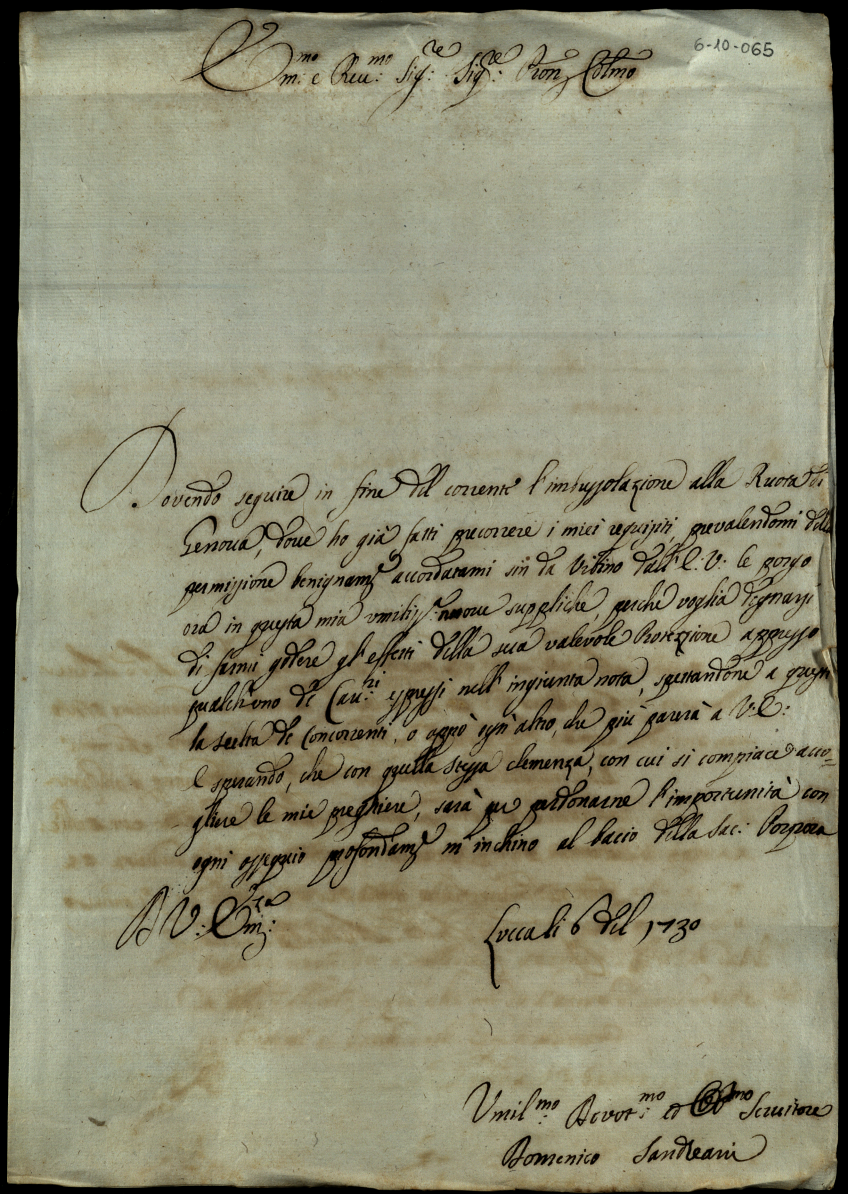 6-10-065
Em:mo e Rev:mo Sig:re Sig:re Pron Colmo
Dovendo seguire in fine del corrente l'imbussolazione alla Ruota di
Genova, dove ho già fatti precorrere i miei requisiti prevalendomi della
permissione benignam.e accordatami sin da Urbino dall'E: V: le porgo
ora in questa mia umiliss.e nuove suppliche, perche voglia degnarsi
di farmi godere gl'effetti della sua valevole Protezione appresso
qualch'uno de Cav:ri espressi nell'ingiunta nota, spettandone a questi
la scelta de Concorrenti, o appò ogn'altro, che più parerà a V: E:
E sperando, che con quella stessa clemenza, con cui si compiace acco=
gliere le mie preghiere, sarà per perdonarne l'importunità con
ogni ossequio profondam.e m'inchino al bacio della Sac: Porpora
D V: Em:za
Lucca li 6 del 1730
Umil:mo Devot:mo ed Obl:mo Servitore
Domenico Sandreani